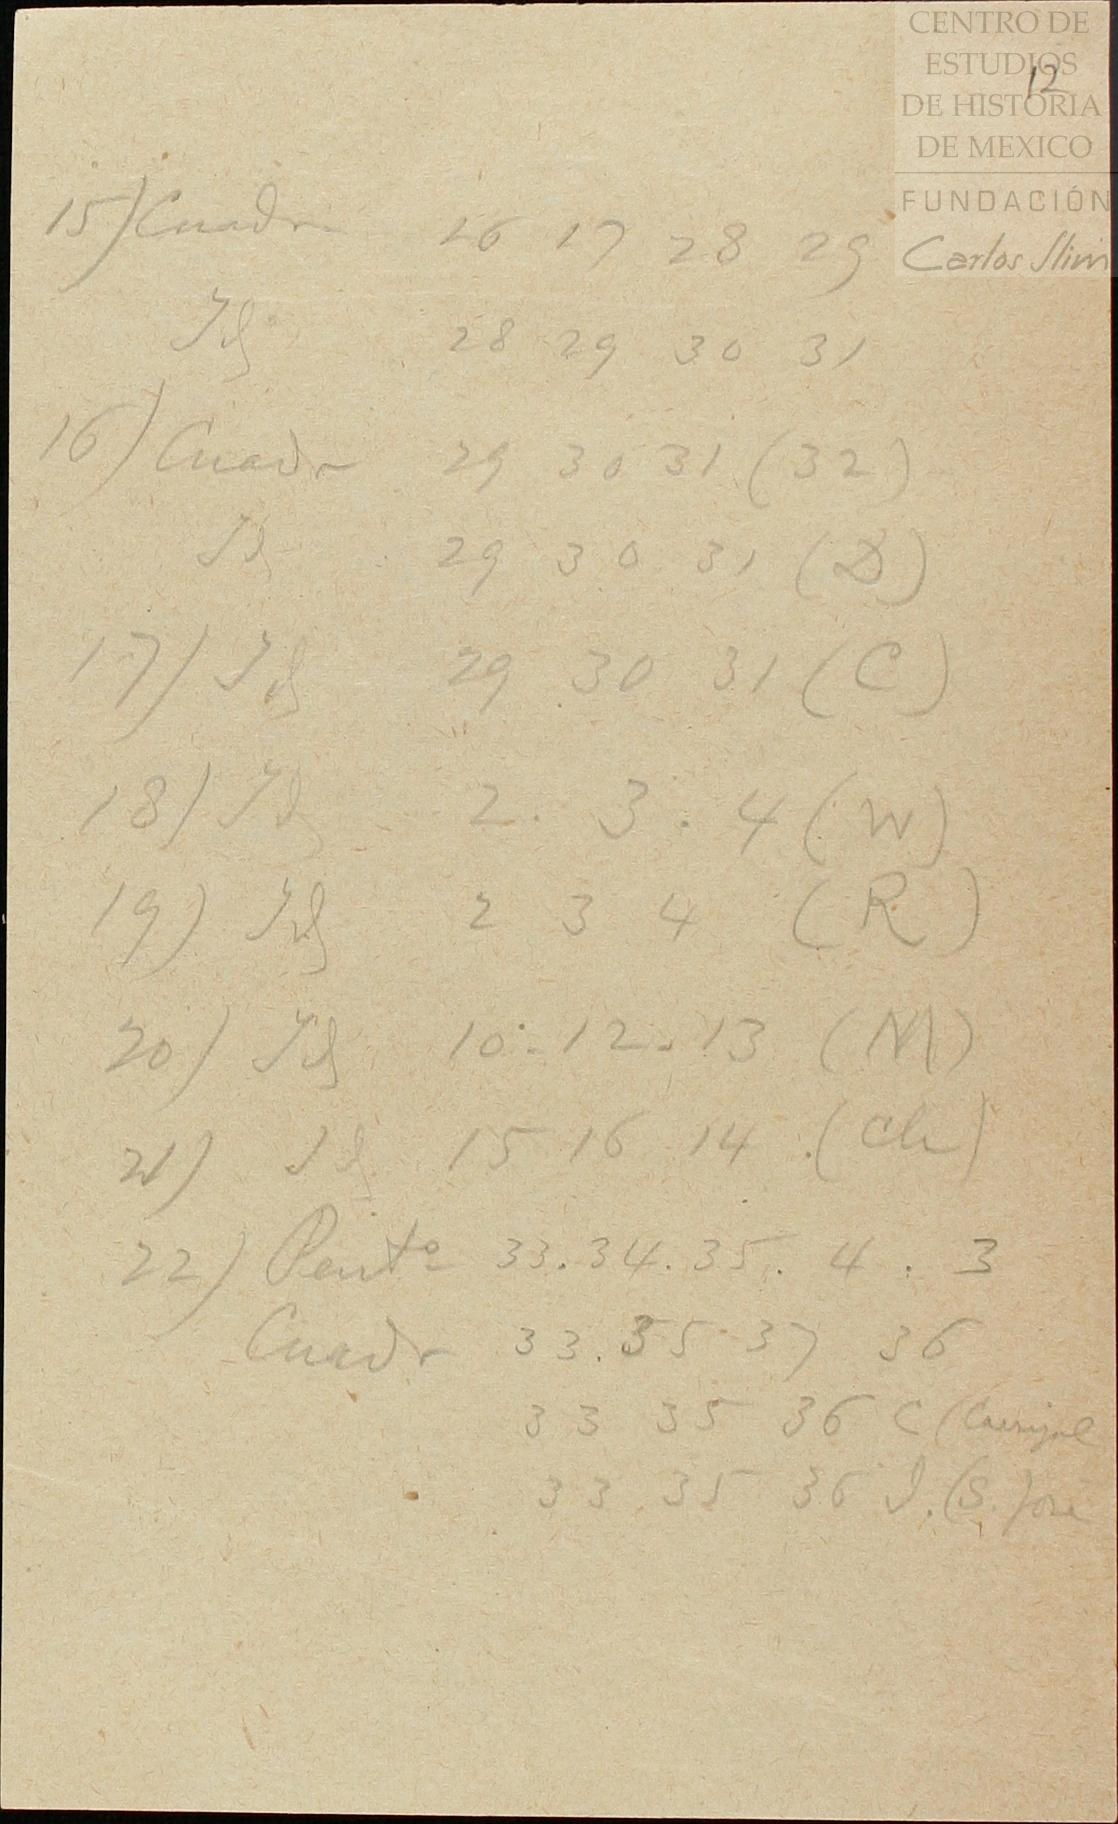 CENTRO DE
ESTUDIOS
DE HISTORIA
DE MEXICO
FUNDACIÓN
Carlos Slim
12
15) Cuadr 16 17 28 29
Id 28 29 30 31
16) Cuadr 29 30 31 (32)
Id 29 30 31 (D)
17) Id 29 30 31 (C)
18) Id 2. 3. 4 (W)
19) Id 2 3 4 (R)
20) Id 10.-12-13 (M)
21) Id 15 16 14 (Ch)
22) Penta 33.34.35. 4. 3
Cuadr 33.35 37 36
33 35 36 C (Carrizal
33 35 36 J. (S. José